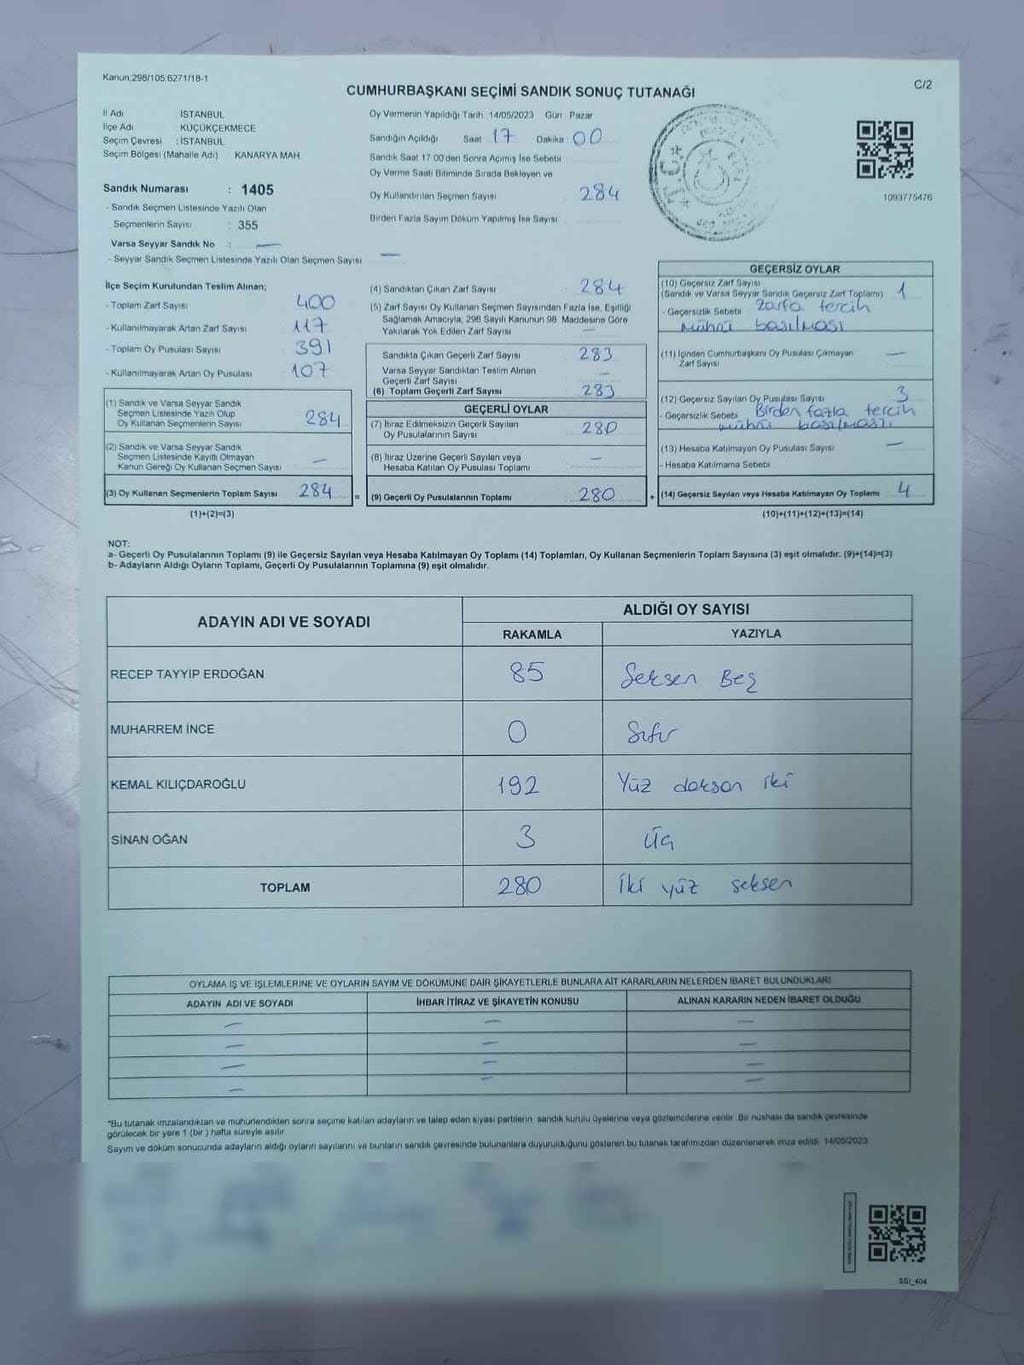 Kanun:298/105 6271/18-1
C/2
CUMHURBAŞKANI SEÇİMİ SANDIK SONUÇ TUTANAĞI
İl Adı İSTANBUL
İlçe Adı KÜÇÜKÇEKMECE
Seçim Çevresi : İSTANBUL
Seçim Bölgesi (Mahalle Adı) KANARYA MAH.
Sandık Numarası : 1405
- Sandık Seçmen Listesinde Yazılı Olan
Seçmenlerin Sayısı : 355
Varsa Seyyar Sandık No : —
- Seyyar Sandık Seçmen Listesinde Yazılı Olan Seçmen Sayısı —
Oy Vermenin Yapıldığı Tarih 14/05/2023 Gün Pazar
Sandığın Açıldığı Saat 17 Dakika 00
Sandık Saat 17 00'den Sonra Açılmış İse Sebebi
Oy Verme Saati Bitiminde Sırada Bekleyen ve
Oy Kullandırılan Seçmen Sayısı 284
Birden Fazla Sayım Döküm Yapılmış İse Sayısı
T.C.
1093775476
İlçe Seçim Kurulundan Teslim Alınan;
- Toplam Zarf Sayısı 400
- Kullanılmayarak Artan Zarf Sayısı 117
- Toplam Oy Pusulası Sayısı 391
- Kullanılmayarak Artan Oy Pusulası 107
(1) Sandık ve Varsa Seyyar Sandık
Seçmen Listesinde Yazılı Olup
Oy Kullanan Seçmenlerin Sayısı 284
(2) Sandık ve Varsa Seyyar Sandık
Seçmen Listesinde Kayıtlı Olmayan
Kanun Gereği Oy Kullanan Seçmen Sayısı —
(3) Oy Kullanan Seçmenlerin Toplam Sayısı 284 =
(1)+(2)=(3)
(4) Sandıktan Çıkan Zarf Sayısı 284
(5) Zarf Sayısı Oy Kullanan Seçmen Sayısından Fazla İse, Eşitliği
Sağlamak Amacıyla, 298 Sayılı Kanunun 98. Maddesine Göre
Yakılarak Yok Edilen Zarf Sayısı —
Sandıkta Çıkan Geçerli Zarf Sayısı 283
Varsa Seyyar Sandıktan Teslim Alınan
Geçerli Zarf Sayısı —
(6) Toplam Geçerli Zarf Sayısı 283
GEÇERLİ OYLAR
(7) İtiraz Edilmeksizin Geçerli Sayılan
Oy Pusulalarının Sayısı 280
(8) İtiraz Üzerine Geçerli Sayılan veya
Hesaba Katılan Oy Pusulası Toplamı —
(9) Geçerli Oy Pusulalarının Toplamı 280 +
GEÇERSİZ OYLAR
(10) Geçersiz Zarf Sayısı
(Sandık ve Varsa Seyyar Sandık Geçersiz Zarf Toplamı) 1
- Geçersizlik Sebebi Zarfa tercih
mührü basılması
(11) İçinden Cumhurbaşkanı Oy Pusulası Çıkmayan
Zarf Sayısı —
(12) Geçersiz Sayılan Oy Pusulası Sayısı 3
- Geçersizlik Sebebi Birden fazla tercih
mührü basılması
(13) Hesaba Katılmayan Oy Pusulası Sayısı —
- Hesaba Katılmama Sebebi
(14) Geçersiz Sayılan veya Hesaba Katılmayan Oy Toplamı 4
(10)+(11)+(12)+(13)=(14)
NOT:
a- Geçerli Oy Pusulalarının Toplamı (9) ile Geçersiz Sayılan veya Hesaba Katılmayan Oy Toplamı (14) Toplamları, Oy Kullanan Seçmenlerin Toplam Sayısına (3) eşit olmalıdır. (9)+(14)=(3)
b- Adayların Aldığı Oyların Toplamı, Geçerli Oy Pusulalarının Toplamına (9) eşit olmalıdır.
ADAYIN ADI VE SOYADI
ALDIĞI OY SAYISI
RAKAMLA YAZIYLA
RECEP TAYYİP ERDOĞAN 85 Seksen Beş
MUHARREM İNCE 0 Sıfır
KEMAL KILIÇDAROĞLU 192 Yüz doksan iki
SİNAN OĞAN 3 Üç
TOPLAM 280 İki yüz seksen
OYLAMA İŞ VE İŞLEMLERİNE VE OYLARIN SAYIM VE DÖKÜMÜNE DAİR ŞİKAYETLERLE BUNLARA AİT KARARLARIN NELERDEN İBARET BULUNDUKLARI
ADAYIN ADI VE SOYADI İHBAR İTİRAZ VE ŞİKAYETİN KONUSU ALINAN KARARIN NEDEN İBARET OLDUĞU
— — —
— — —
— — —
— — —
*Bu tutanak imzalandıktan ve mühürlendikten sonra seçime katılan adayların ve talep eden siyasi partilerin sandık kurulu üyelerine veya gözlemcilerine verilir. Bir nüshası da sandık çevresinde
görülecek bir yere 1 (bir ) hafta süreyle asılır.
Sayım ve döküm sonucunda adayların aldığı oyların sayılarını ve bunların sandık çevresinde bulunanlara duyurulduğunu gösteren bu tutanak tarafımızdan düzenlenerek imza edildi. 14/05/2023
SSI_404